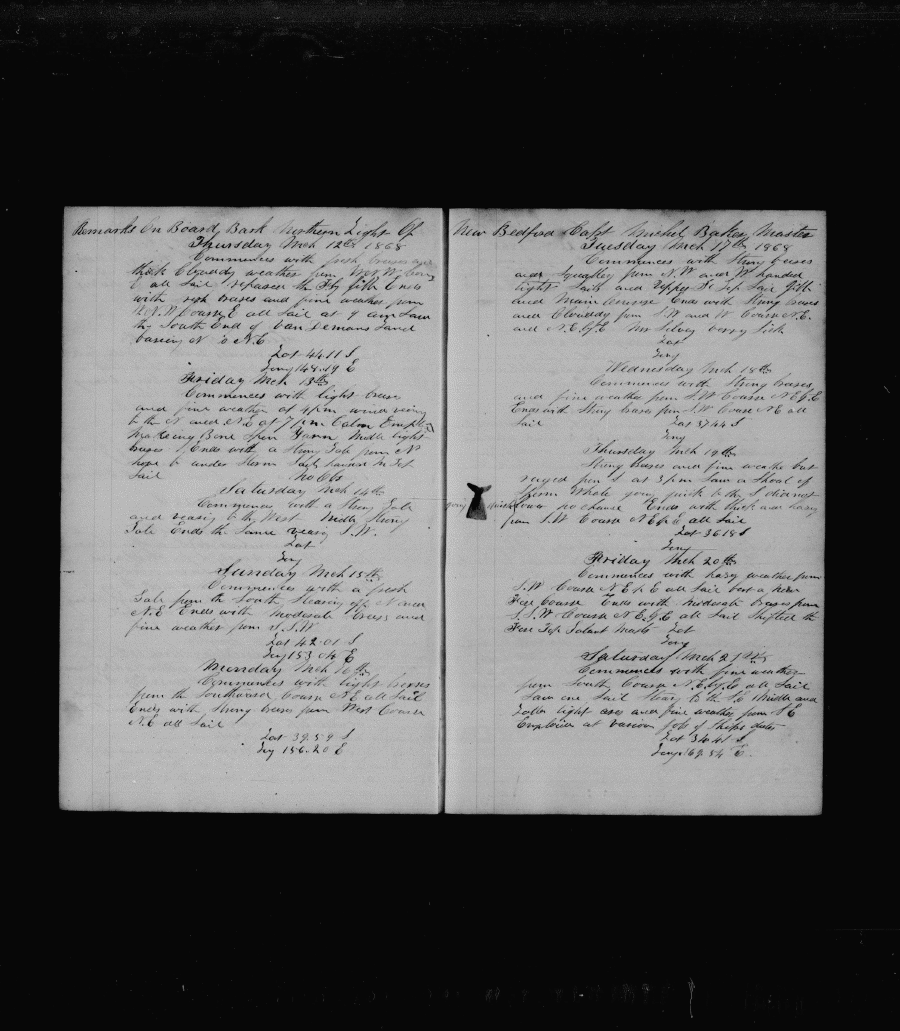 Remarks On Board Bark Northern Light Of
Thursday Mch 12th 1868
Commences with fresh breeses and
thick Clouddy weather from W.N.W.
E all Sail repaired the Fly gibb Ends
with fresh breases and fine weather from
W.N.W Course E all Sail at 9 am Saw
the South End of Van Demans Land
baring N to N.E
Lat 44.11 S
Long 148.19 E
Friday Mch 13th
Commences with light breses
and fine weather at 4 pm wind
to the N and N.E at 7 pm Calm Employed
Makeing Bone Spun Yarn Middle light
breses Ends with a Strong Gale from N
under Storm Sails Main Top
Sail No Obs
Saturday Mch 14th
Commences with a Strong Gale
and veasing to the West Middle Strong
Gale Ends the Same veasing S.W.
Lat
Long
Sunday Mch 15th
Commences with a fresh
Gale from the South Stearing off N and
N.E Ends with moderate breses and
fine weather from S.S.W
Lat 42.01 S
Long 153.04 E
Monday Mch 16th
Commences with light breses
from the Southward Course N.E all Sail
Ends with Strong breses from West Course
N.E all Sail
Lat 39.59 S
Long 156.20 E
New Bedford Capt Michel Baker Master
Tuesday Mch 17th 1868
Commences with Strong breses
and Squalley from N.W and W handed
light Sails and Top Sail Gibb
and Main Ends with Strong breses
and Clouddy from S.W and W Course N.E.
and N.E.byE Mr Silvey verry Sick
Lat
Long
Wednesday Mch 18th
Commences with Strong breses
and fine weather from S.W Course N.E.byE
Ends with Strong breses from S.W Course N.E all
Sail Lat 37.44 S
Long
Thursday Mch 19th
Strong breses and fine weathe but
ruged from S at 3 pm Saw a Shoal of
Sperm Whale going quick to the S did not
lower no chance Ends with thick and hazy
from S.W Course N.E by E all Sail
Lat 36.18 S
Long
Friday Mch 20th
Commences with hazy weather from
S.W Course N.E by E all Sail bent a new
Fore Course Ends with moderate breses from
S.S.W Course N.E.byE all Sail Shifted the
Fore Top Galant Masts Lat
Long
Saturday Mch 21st
Commences with fine weather
from South Course N.E.byE all Sail
Saw one Sail Stearing to the Middle and
Latter light ares and fine weather from S E
Employed at various Jobs of Ships duty
Lat 34.41 S
Long 162.54 E.